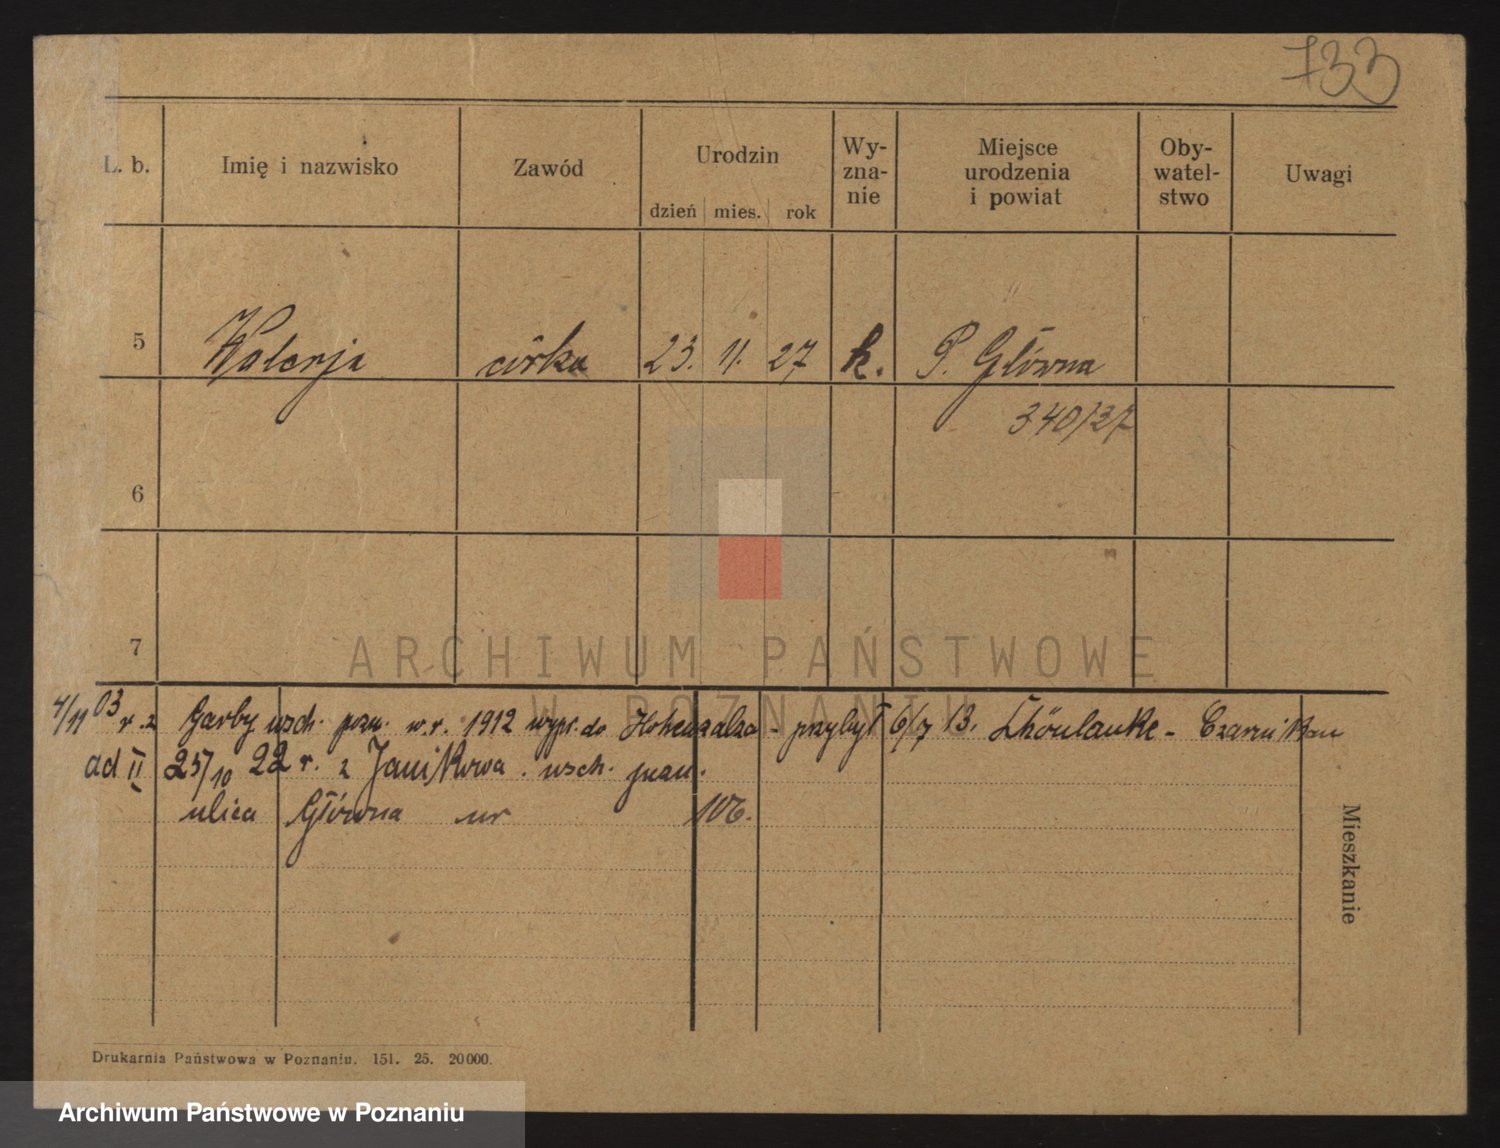 733
L. b. Imię i nazwisko Zawód Urodzin Wy-zna-nie Miejsce urodzenia i powiat Oby-watel-stwo Uwagi
dzień mies. rok
5 Walerja córka 23. 11. 27 k. P. Główna
340/27
6
7
ARCHIWUM PAŃSTWOWE
W POZNANIU
4/11 03 r. z Garby wsch. pozn. w r. 1912 wypr. do Hohensalza - przybył 6/7 13. Schönlanke - Czarnikau
ad II 25/10 22 r. z Janikowa. wsch. pozn.
ulica Główna nr 106.
Mieszkanie
Drukarnia Państwowa w Poznaniu. 151. 25. 20000.
Archiwum Państwowe w Poznaniu